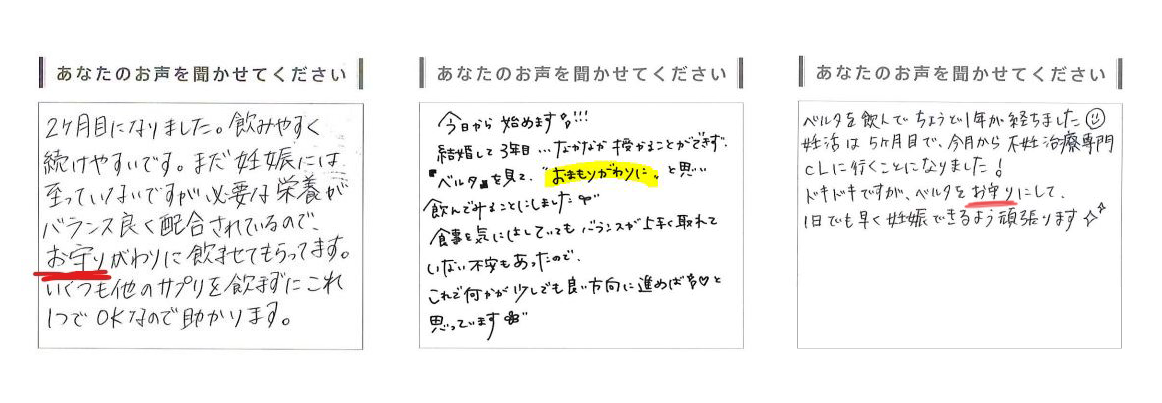 あなたのお声を聞かせてください
2ヶ月目になりました。飲みやすく
続けやすいです。まだ妊娠には
至っていないですが必要な栄養が
バランス良く配合されているので、
お守りがわりに飲ませてもらってます。
いくつも他のサプリを飲まずにこれ
1つでOKなので助かります。
あなたのお声を聞かせてください
今日から始めます!!!
結婚して3年目…なかなか授かることができず、
『ベルタ』を見て、"おまもりがわりに"と思い
飲んでみることにしました
食事を気にはしていてもバランスが上手く取れて
いない不安もあったので、
これで何かが少しでも良い方向に進めば♡と
思っています
あなたのお声を聞かせてください
ベルタを飲んでちょうど1年が経ちました
妊活は5ヶ月目で、今月から不妊治療専門
CLに行くことになりました!
ドキドキですが、ベルタをお守りにして、
1日でも早く妊娠できるよう頑張ります☆